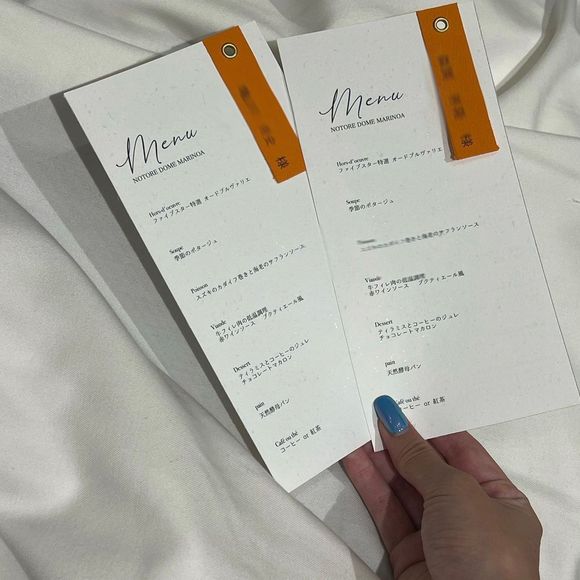 Menu
NOTORE DOME MARINOA
Hors-d'oeuvre
ファイブスター特選 オードブルヴァリエ
Soupe
季節のポタージュ
Poisson
スズキのカダイフ巻きと海老のサフランソース
Viande
牛フィレ肉の低温調理
赤ワインソース ブクティエール風
Dessert
ティラミスとコーヒーのジュレ
チョコレートマカロン
pain
天然酵母パン
Café ou thé
コーヒー or 紅茶
様
Menu
NOTORE DOME MARINOA
Hors-d'oeuvre
ファイブスター特選 オードブルヴァリエ
Soupe
季節のポタージュ
海老のサフランソース
Viande
牛フィレ肉の低温調理
赤ワインソース ブクティエール風
Dessert
ティラミスとコーヒーのジュレ
チョコレートマカロン
pain
天然酵母パン
ou thé
コーヒー or 紅茶
様